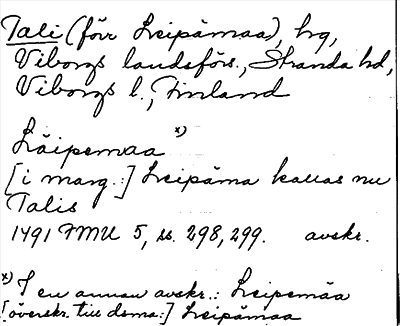 Tali (förr Leipämaa), hg,
Viborgs landsförs., Stranda hd,
Viborgs l., Finland
Läipemaa x)
[i marg.:] Leipäma kallas nu
Talis
1491 FMU 5, ss. 298, 299. avskr.
x) I en annan avskr.: Leipemäa
[överskr. till dema:] Leipämaa